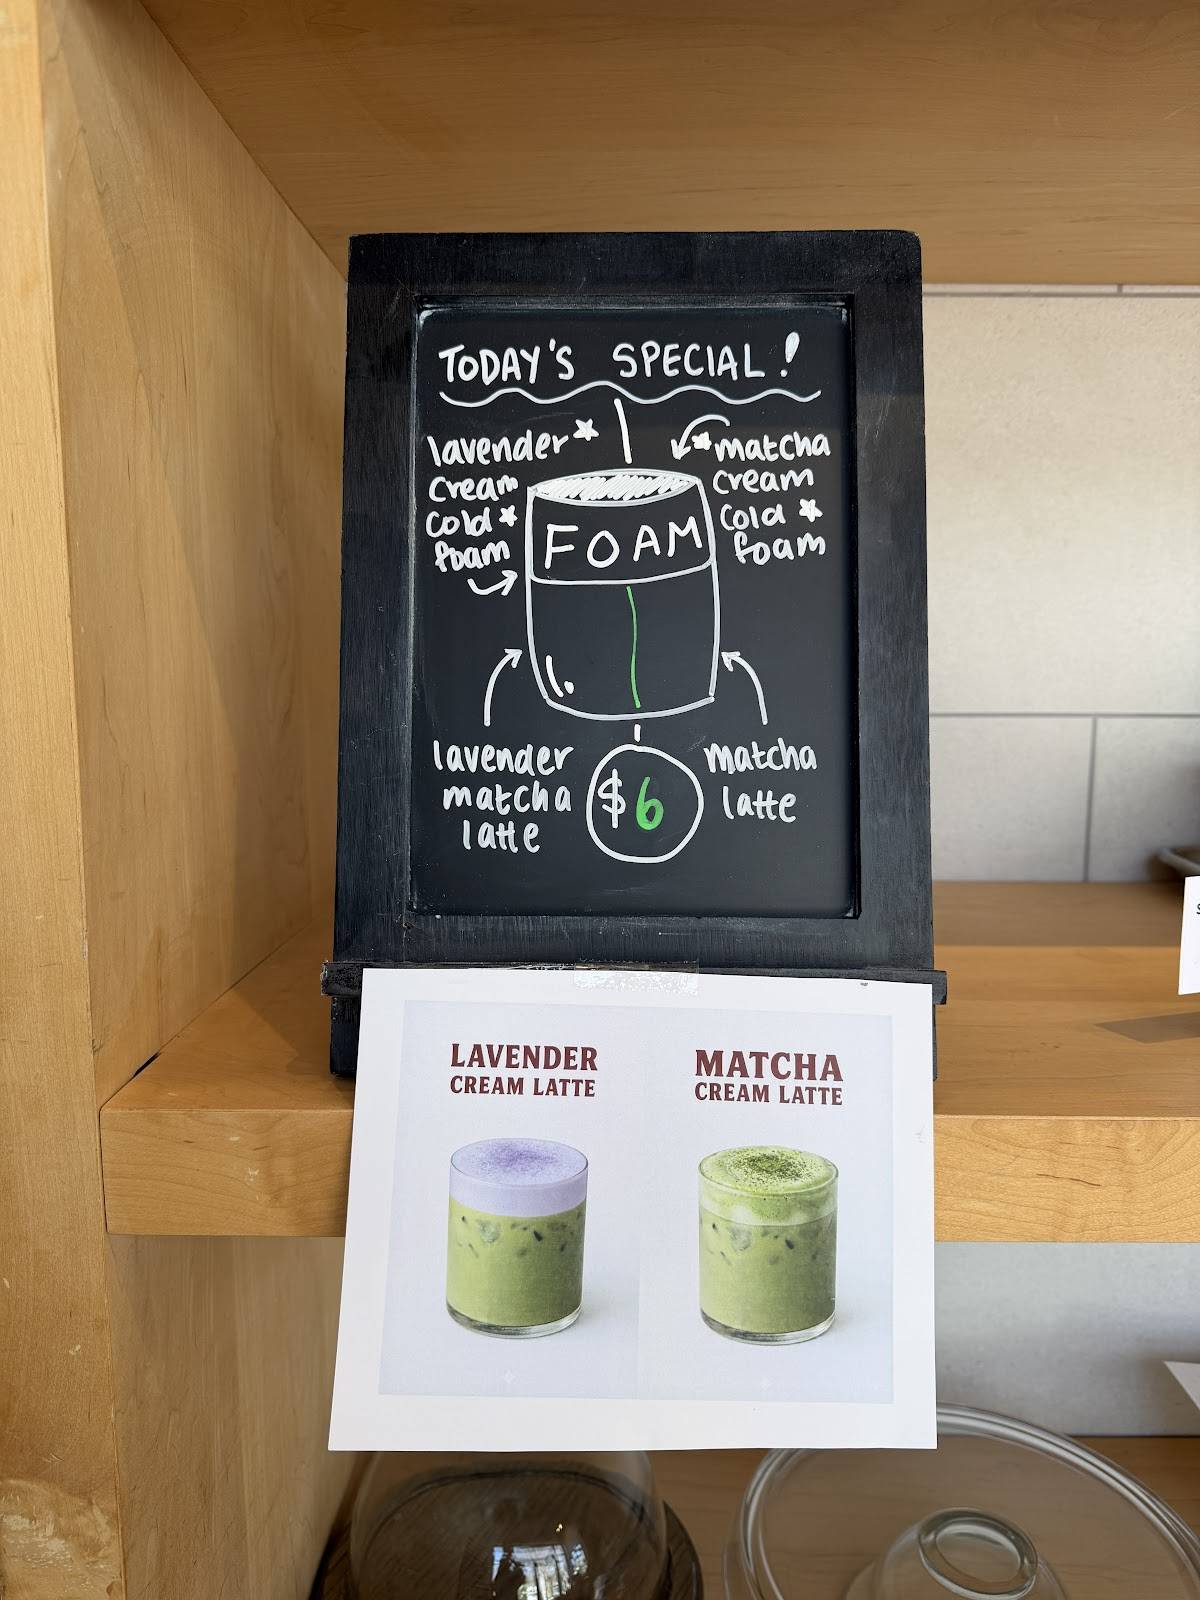 TODAY'S SPECIAL!
lavender
cream
cold
foam
matcha
cream
cold
foam
FOAM
lavender
matcha
latte
$6
matcha
latte
LAVENDER
CREAM LATTE
MATCHA
CREAM LATTE